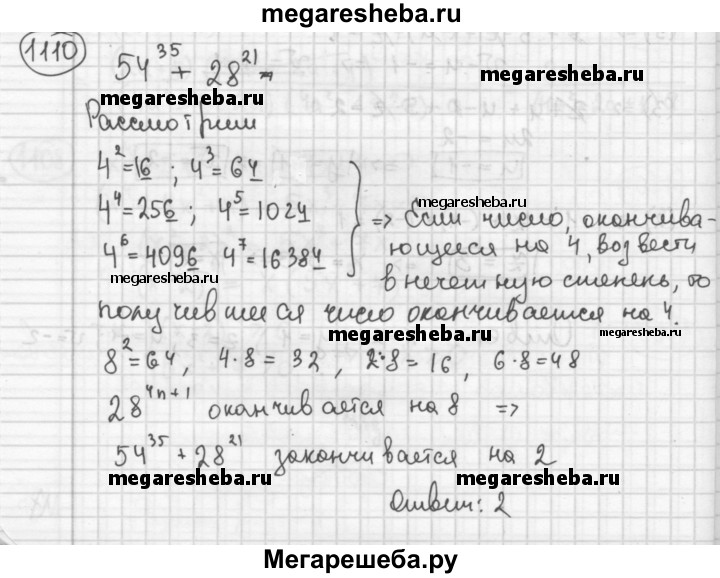 megaresheba.ru
1110
54³⁵ + 28²¹ =
megaresheba.ru
megaresheba.ru
Рассмотрим
4² = 16 ; 4³ = 64
4⁴ = 256 ; 4⁵ = 1024
4⁶ = 4096 4⁷ = 16384
megaresheba.ru
megaresheba.ru
=> Если число, оканчива-
ющееся на 4, возвести
в нечетную степень, то
получившееся число оканчивается на 4.
megaresheba.ru
megaresheba.ru
8² = 64, 4·8 = 32, 2·8 = 16, 6·8 = 48
28⁴ⁿ⁺¹ оканчивается на 8 =>
54³⁵ + 28²¹ заканчивается на 2
megaresheba.ru
megaresheba.ru
Ответ: 2
Мегарешеба.ру